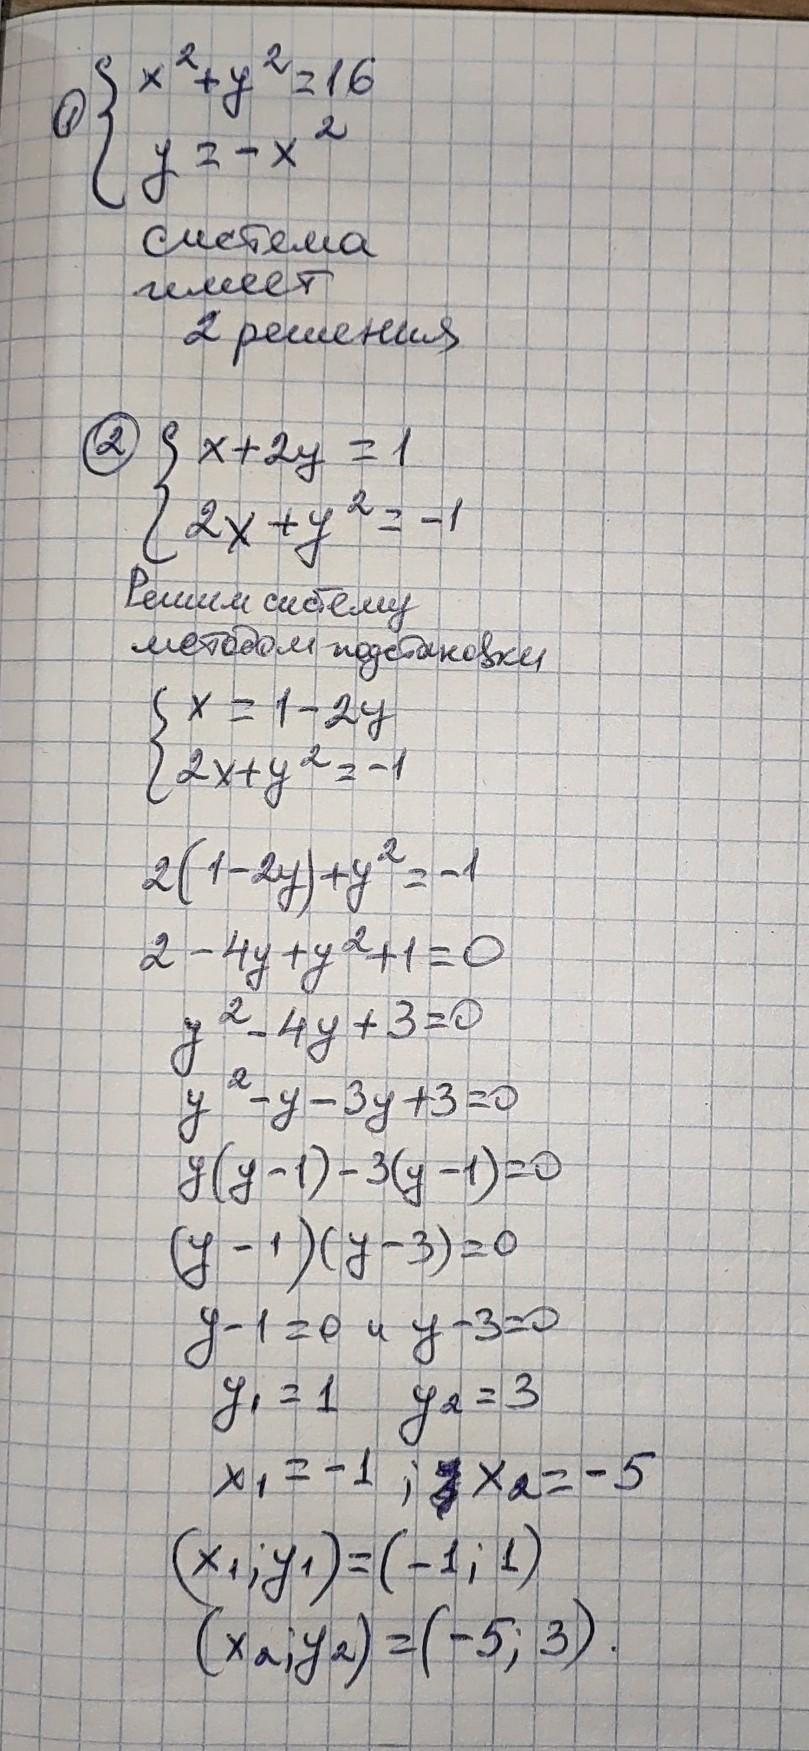 ① { x² + y² = 16
y = -x²
система
имеет
2 решения
② { x + 2y = 1
2x + y² = -1
Решим систему
методом подстановки
{ x = 1 - 2y
2x + y² = -1
2(1 - 2y) + y² = -1
2 - 4y + y² + 1 = 0
y² - 4y + 3 = 0
y² - y - 3y + 3 = 0
y(y - 1) - 3(y - 1) = 0
(y - 1)(y - 3) = 0
y - 1 = 0 и y - 3 = 0
y₁ = 1 y₂ = 3
x₁ = -1 ; x₂ = -5
(x₁; y₁) = (-1; 1)
(x₂; y₂) = (-5; 3).